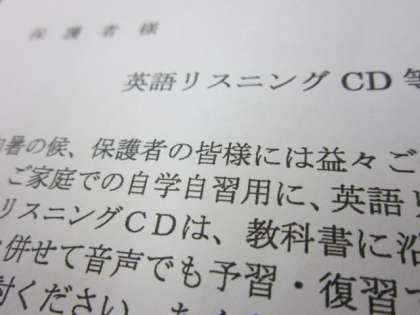 保護者様
英語リスニングCD等
暑の候、保護者の皆様には益々ご
ご家庭での自学自習用に、英語リ
リスニングCDは、教科書に沿
併せて音声でも予習・復習
討ください。